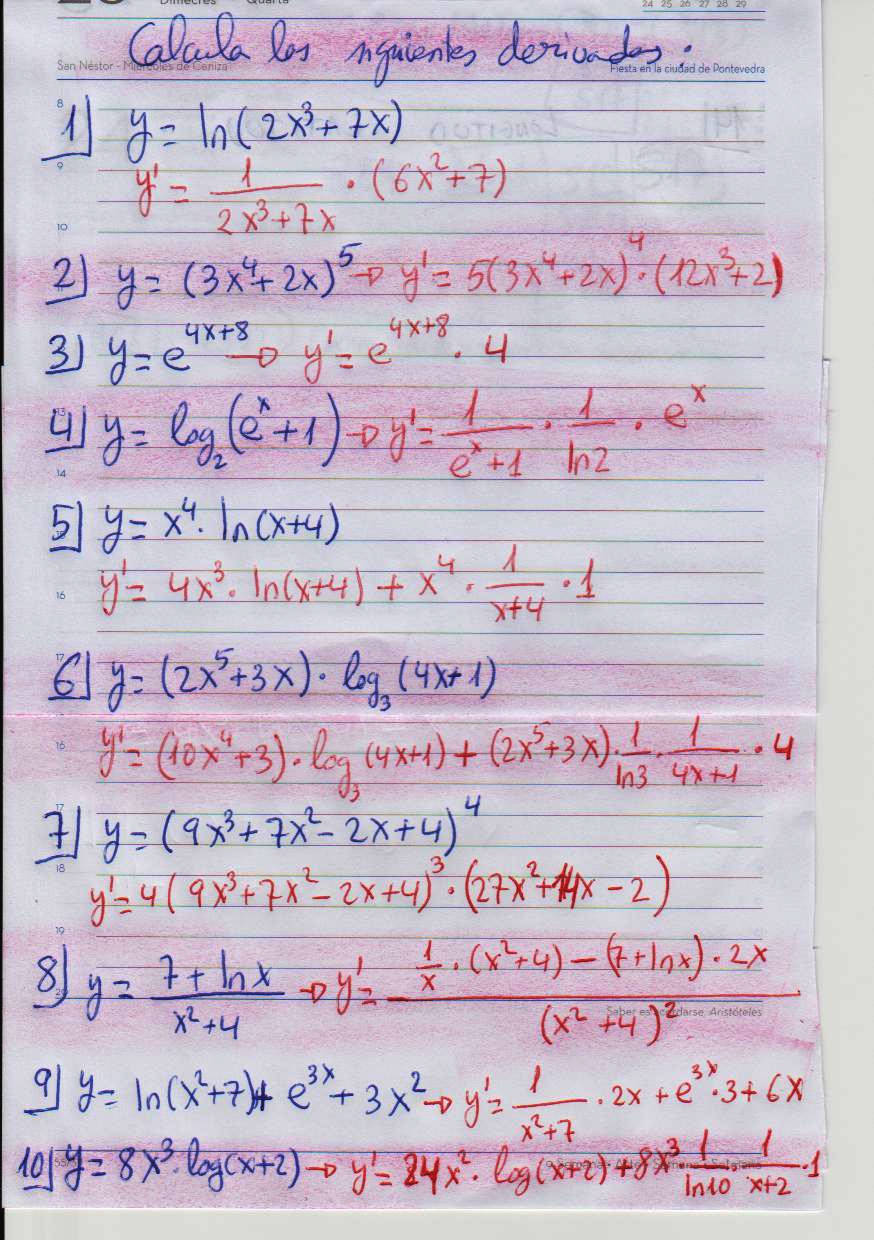 Dimecres Quarta
24 25 26 27 28 29
Calcula las siguientes derivadas:
San Néstor - Miércoles de Ceniza Fiesta en la ciudad de Pontevedra
8
1] y = ln(2x³+7x)
9
y' = 1/(2x³+7x) · (6x²+7)
10
2] y = (3x⁴+2x)⁵ → y' = 5(3x⁴+2x)⁴ · (12x³+2)
3] y = e^(4x+8) → y' = e^(4x+8) · 4
13
4] y = log₂(eˣ+1) → y' = 1/(eˣ+1) · 1/ln2 · eˣ
14
5] y = x⁴ · ln(x+4)
y' = 4x³ · ln(x+4) + x⁴ · 1/(x+4) · 1
16
17
6] y = (2x⁵+3x) · log₃(4x+1)
16
y' = (10x⁴+3) · log₃(4x+1) + (2x⁵+3x) · 1/ln3 · 1/(4x+1) · 4
17
7] y = (9x³+7x²-2x+4)⁴
18
y' = 4(9x³+7x²-2x+4)³ · (27x²+14x-2)
19
8] y = (7+ln x)/(x²+4) → y' = (1/x · (x²+4) - (7+ln x) · 2x)/(x²+4)²
Aristóteles
9] y = ln(x²+7) + e^(3x) + 3x² → y' = 1/(x²+7) · 2x + e^(3x) · 3 + 6x
10] y = 8x³ · log(x+2) → y' = 24x² · log(x+2) + 8x³ 1/ln10 · 1/(x+2) · 1